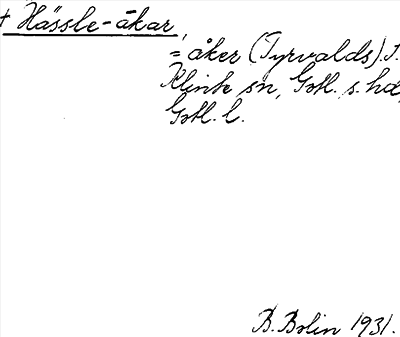 + Hässle-åkar,
= åker (Tyrvalds). I.
Klinte sn, Gotl. s. hd,
Gotl. l.
B. Bolin 1931.